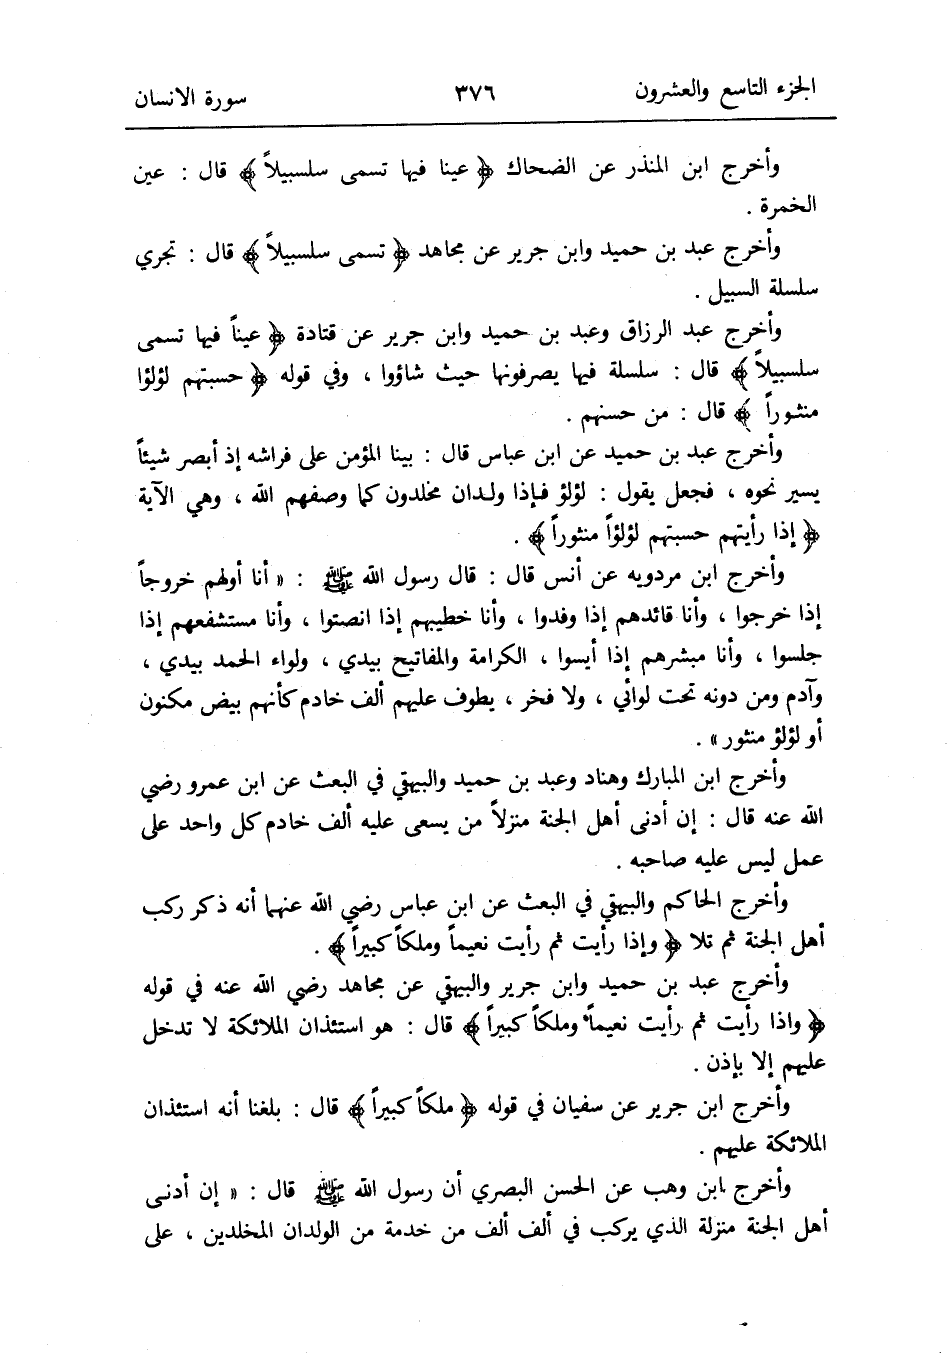 الجزء التاسع والعشرون ٣٧٦ سورة الانسان
وأخرج ابن المنذر عن الضحاك ﴿ عينا فيها تسمى سلسبيلاً ﴾ قال : عين
الخمرة .
وأخرج عبد بن حميد وابن جرير عن مجاهد ﴿ تسمى سلسبيلاً ﴾ قال : تجري
سلسلة السبيل .
وأخرج عبد الرزاق وعبد بن حميد وابن جرير عن قتادة ﴿ عيناً فيها تسمى
سلسبيلاً ﴾ قال : سلسلة فيها يصرفونها حيث شاؤوا ، وفي قوله ﴿ حسبتهم لؤلؤا
منثوراً ﴾ قال : من حسنهم .
وأخرج عبد بن حميد عن ابن عباس قال : بينا المؤمن على فراشه إذ أبصر شيئاً
يسير نحوه ، فجعل يقول : لؤلؤ فإذا ولدان مخلدون كما وصفهم الله ، وهي الآية
﴿ إذا رأيتهم حسبتهم لؤلؤاً منثوراً ﴾ .
وأخرج ابن مردويه عن أنس قال : قال رسول الله ﷺ : « أنا أولهم خروجاً
إذا خرجوا ، وأنا قائدهم إذا وفدوا ، وأنا خطيبهم إذا انصتوا ، وأنا مستشفعهم إذا
جلسوا ، وأنا مبشرهم إذا أيسوا ، الكرامة والمفاتيح بيدي ، ولواء الحمد بيدي ،
وآدم ومن دونه تحت لوائي ، ولا فخر ، يطوف عليهم ألف خادم كأنهم بيض مكنون
أو لؤلؤ منثور » .
وأخرج ابن المبارك وهناد وعبد بن حميد والبيهقي في البعث عن ابن عمرو رضي
الله عنه قال : إن أدنى أهل الجنة منزلاً من يسعى عليه ألف خادم كل واحد على
عمل ليس عليه صاحبه .
وأخرج الحاكم والبيهقي في البعث عن ابن عباس رضي الله عنهما أنه ذكر ركب
أهل الجنة ثم تلا ﴿ وإذا رأيت ثم رأيت نعيماً وملكاً كبيراً ﴾ .
وأخرج عبد بن حميد وابن جرير والبيهقي عن مجاهد رضي الله عنه في قوله
﴿ واذا رأيت ثم رأيت نعيماً وملكاً كبيراً ﴾ قال : هو استئذان الملائكة لا تدخل
عليهم إلا بإذن .
وأخرج ابن جرير عن سفيان في قوله ﴿ ملكاً كبيراً ﴾ قال : بلغنا أنه استئذان
الملائكة عليهم .
وأخرج ابن وهب عن الحسن البصري أن رسول الله ﷺ قال : « إن أدنى
أهل الجنة منزلة الذي يركب في ألف ألف من خدمة من الولدان المخلدين ، على